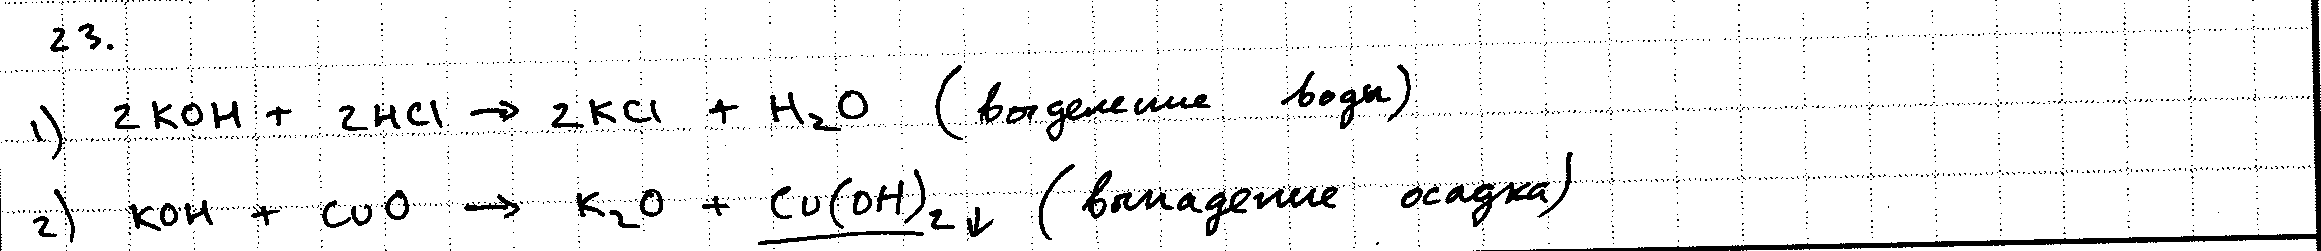 23.
1) 2KOH + 2HCl → 2KCl + H₂O (выделение воды)
2) KOH + CuO → K₂O + Cu(OH)₂↓ (выпадение осадка)